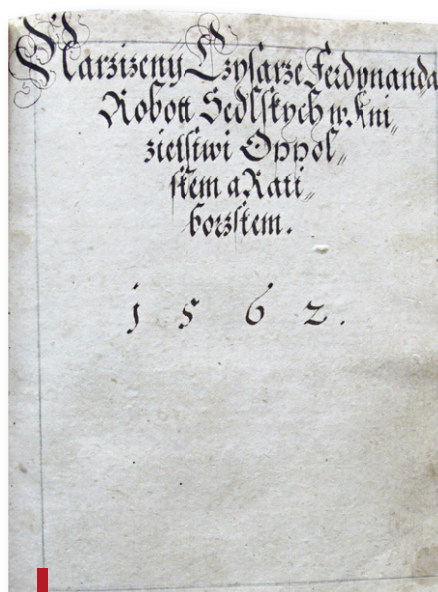 Narzizeny Czysarze Ferdynanda
Robott Sedlskych w Kni„
zietstwi Oppol„
skem a Rati„
borzskem.
1562.